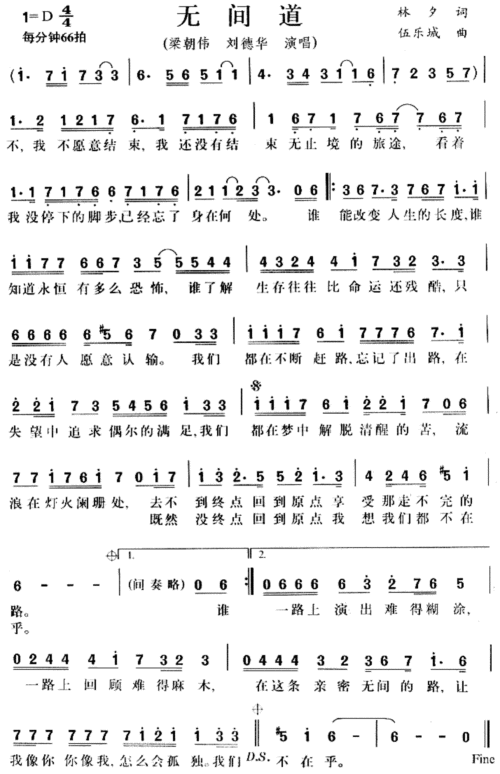 无间道
1=D 4/4
每分钟66拍
(梁朝伟 刘德华 演唱)
林夕 词
伍乐城 曲
(1· 7 1 7 3 3 | 6· 5 6 5 1 1 | 4· 3 4 3 1 1 6 | 7 2 3 5 7)
1· 2 1 2 1 7 6· 1 7 1 7 6 | 1 6 7 1 7 6 7 7 6 7
不,我 不愿意结 束,我 还没有结 束 无止 境的 旅途, 看着
1· 1 7 1 7 6 6 7 1 7 6 | 2 1 1 2 3 3· 0 6 ‖: 3 6 7· 3 7 6 7 1· 1
我 没停下的脚步,已经忘了 身在何 处。 谁 能改变 人生的长度,谁
1 1 7 7 6 6 7 3 5 5 5 4 5 | 4 3 2 4 4 1 7 3 2 3· 3
知道永恒 有多么 恐怖, 谁了解 生存往往 比命运还残 酷,只
6 6 6 6 6 #5 6 7 0 3 3 | 1 1 1 7 6 1 7 7 7 6 7· 1
是没有人 愿意认输。 我们 都在不断 赶路,忘记了出路,在
2 2 1 7 3 5 4 5 6 1 3 3 | 1 1 1 7 6 1 2 2 1 7 0 6
失望中 追求 偶尔的 满足,我们 都在梦中 解脱 清醒的 苦, 流
7 7 1 7 6 1 7 0 1 7 | 1 3 2· 5 5 2 1· 3 | 4 2 4 6 #5 1
浪在灯火阑珊处, 去不 到终点 回到原点 享 受那走不完的
既然 没终点 回到原点 我 想我们都不在
1.
2.
6 - - - | (间奏略) 0 6 :‖ 0 6 6 6 6 3 2 7 6 5
路。 谁 一路上 演出 难得糊 涂,
乎。
0 2 4 4 4 1 7 3 2 3 | 0 4 4 4 3 2 3 6 7 1· 6
一路上 回顾 难得麻 木, 在这条 亲密 无间的 路,让
7 7 7 6 7 7 7 7 1 2 1 1 3 3 ‖ #5 1 6 - | 6 - - 0 ‖
我像你 你像我,怎么会 孤 独。我们 D.S. 不在乎。 Fine